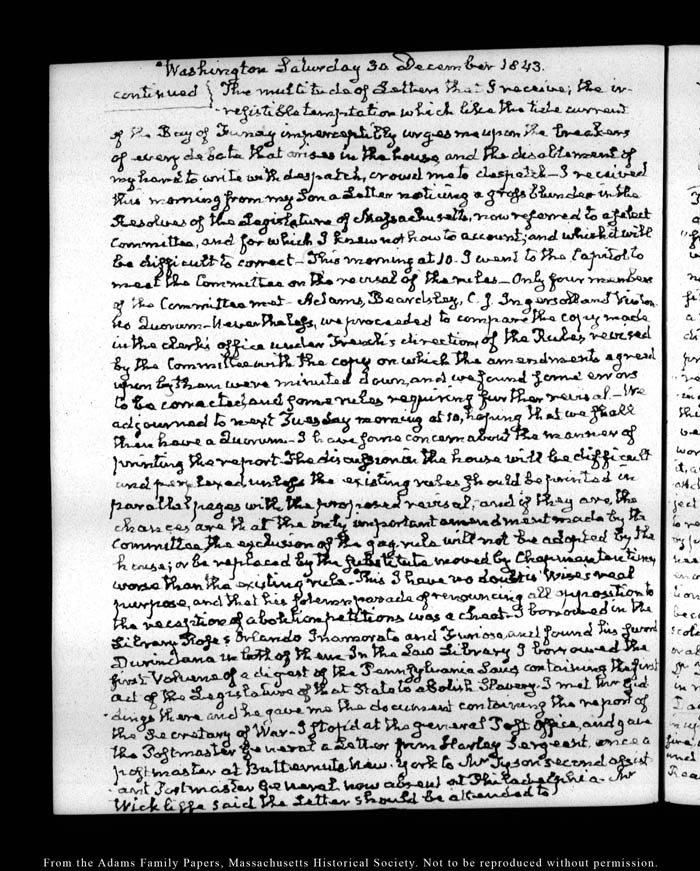 Washington Saturday 30 December 1843.
continued } The multitude of Letters that I receive; the ir-
-resistible temptation which like the tide current
of the Bay of Funday imperceptibly urges me upon the breakers
of every debate that arises in the house, and the disablement of
my hand to write with despatch, crowd me to despatch – I received
this morning from my Son a Letter noticing a gross blunder in the
Resolves of the Legislature of Massachusetts, now referred to a select
Committee, and for which I knew not how to account; and which it will
be difficult to correct – This morning at 10. I went to the Capitol to
meet the Committee on the revisal of the rules – Only four members
of the Committee met – Adams, Beardsley, C. J. Ingersoll and Vinton
no Quorum – Nevertheless, we proceeded to compare the copy made
in the clerk's office under French's direction, of the Rules revised
by the Committee with the copy on which the amendments agreed
upon by them were minuted down, and we found some errors
to be corrected, and some rules requiring further revisal – We
adjourned to next Tuesday morning at 10, hoping that we shall
then have a Quorum – I have some concern about the manner of
printing the report – The discussion in the house will be difficult
and perplexed unless the existing rules should be printed in
parallel pages with the proposed revisal; and if they are, the
chances are that the only important amendment made by the
Committee, the exclusion of the gag-rule will not be adopted by the
house; or be replaced by the substitute moved by Chapman ten times
worse than the existing rule. This I have no doubt is Wise's real
purpose, and that his solemn parade of renouncing all opposition to
the reception of abolition petitions was a cheat – I borrowed in the
Library Rose's Orlando Innamorato and Furioso, and found his sword
Durindana in both of them – In the Law Library I borrowed the
first Volume of a digest of the Pennsylvania Laws containing the first
act of the Legislature of that State to abolish Slavery – I met Mr Gid-
-dings there and he gave me the document containing the report of
the Secretary of War – I stop'd at the general Post Office, and gave
the Postmaster General a Letter from Harley Sergeant, once a
postmaster at Butternuts New-York to Mr Tyson second assist
-ant Postmaster General now absent at Philadelphia – Mr
Wickliffe said the Letter should be attended to
From the Adams Family Papers, Massachusetts Historical Society. Not to be reproduced without permission.